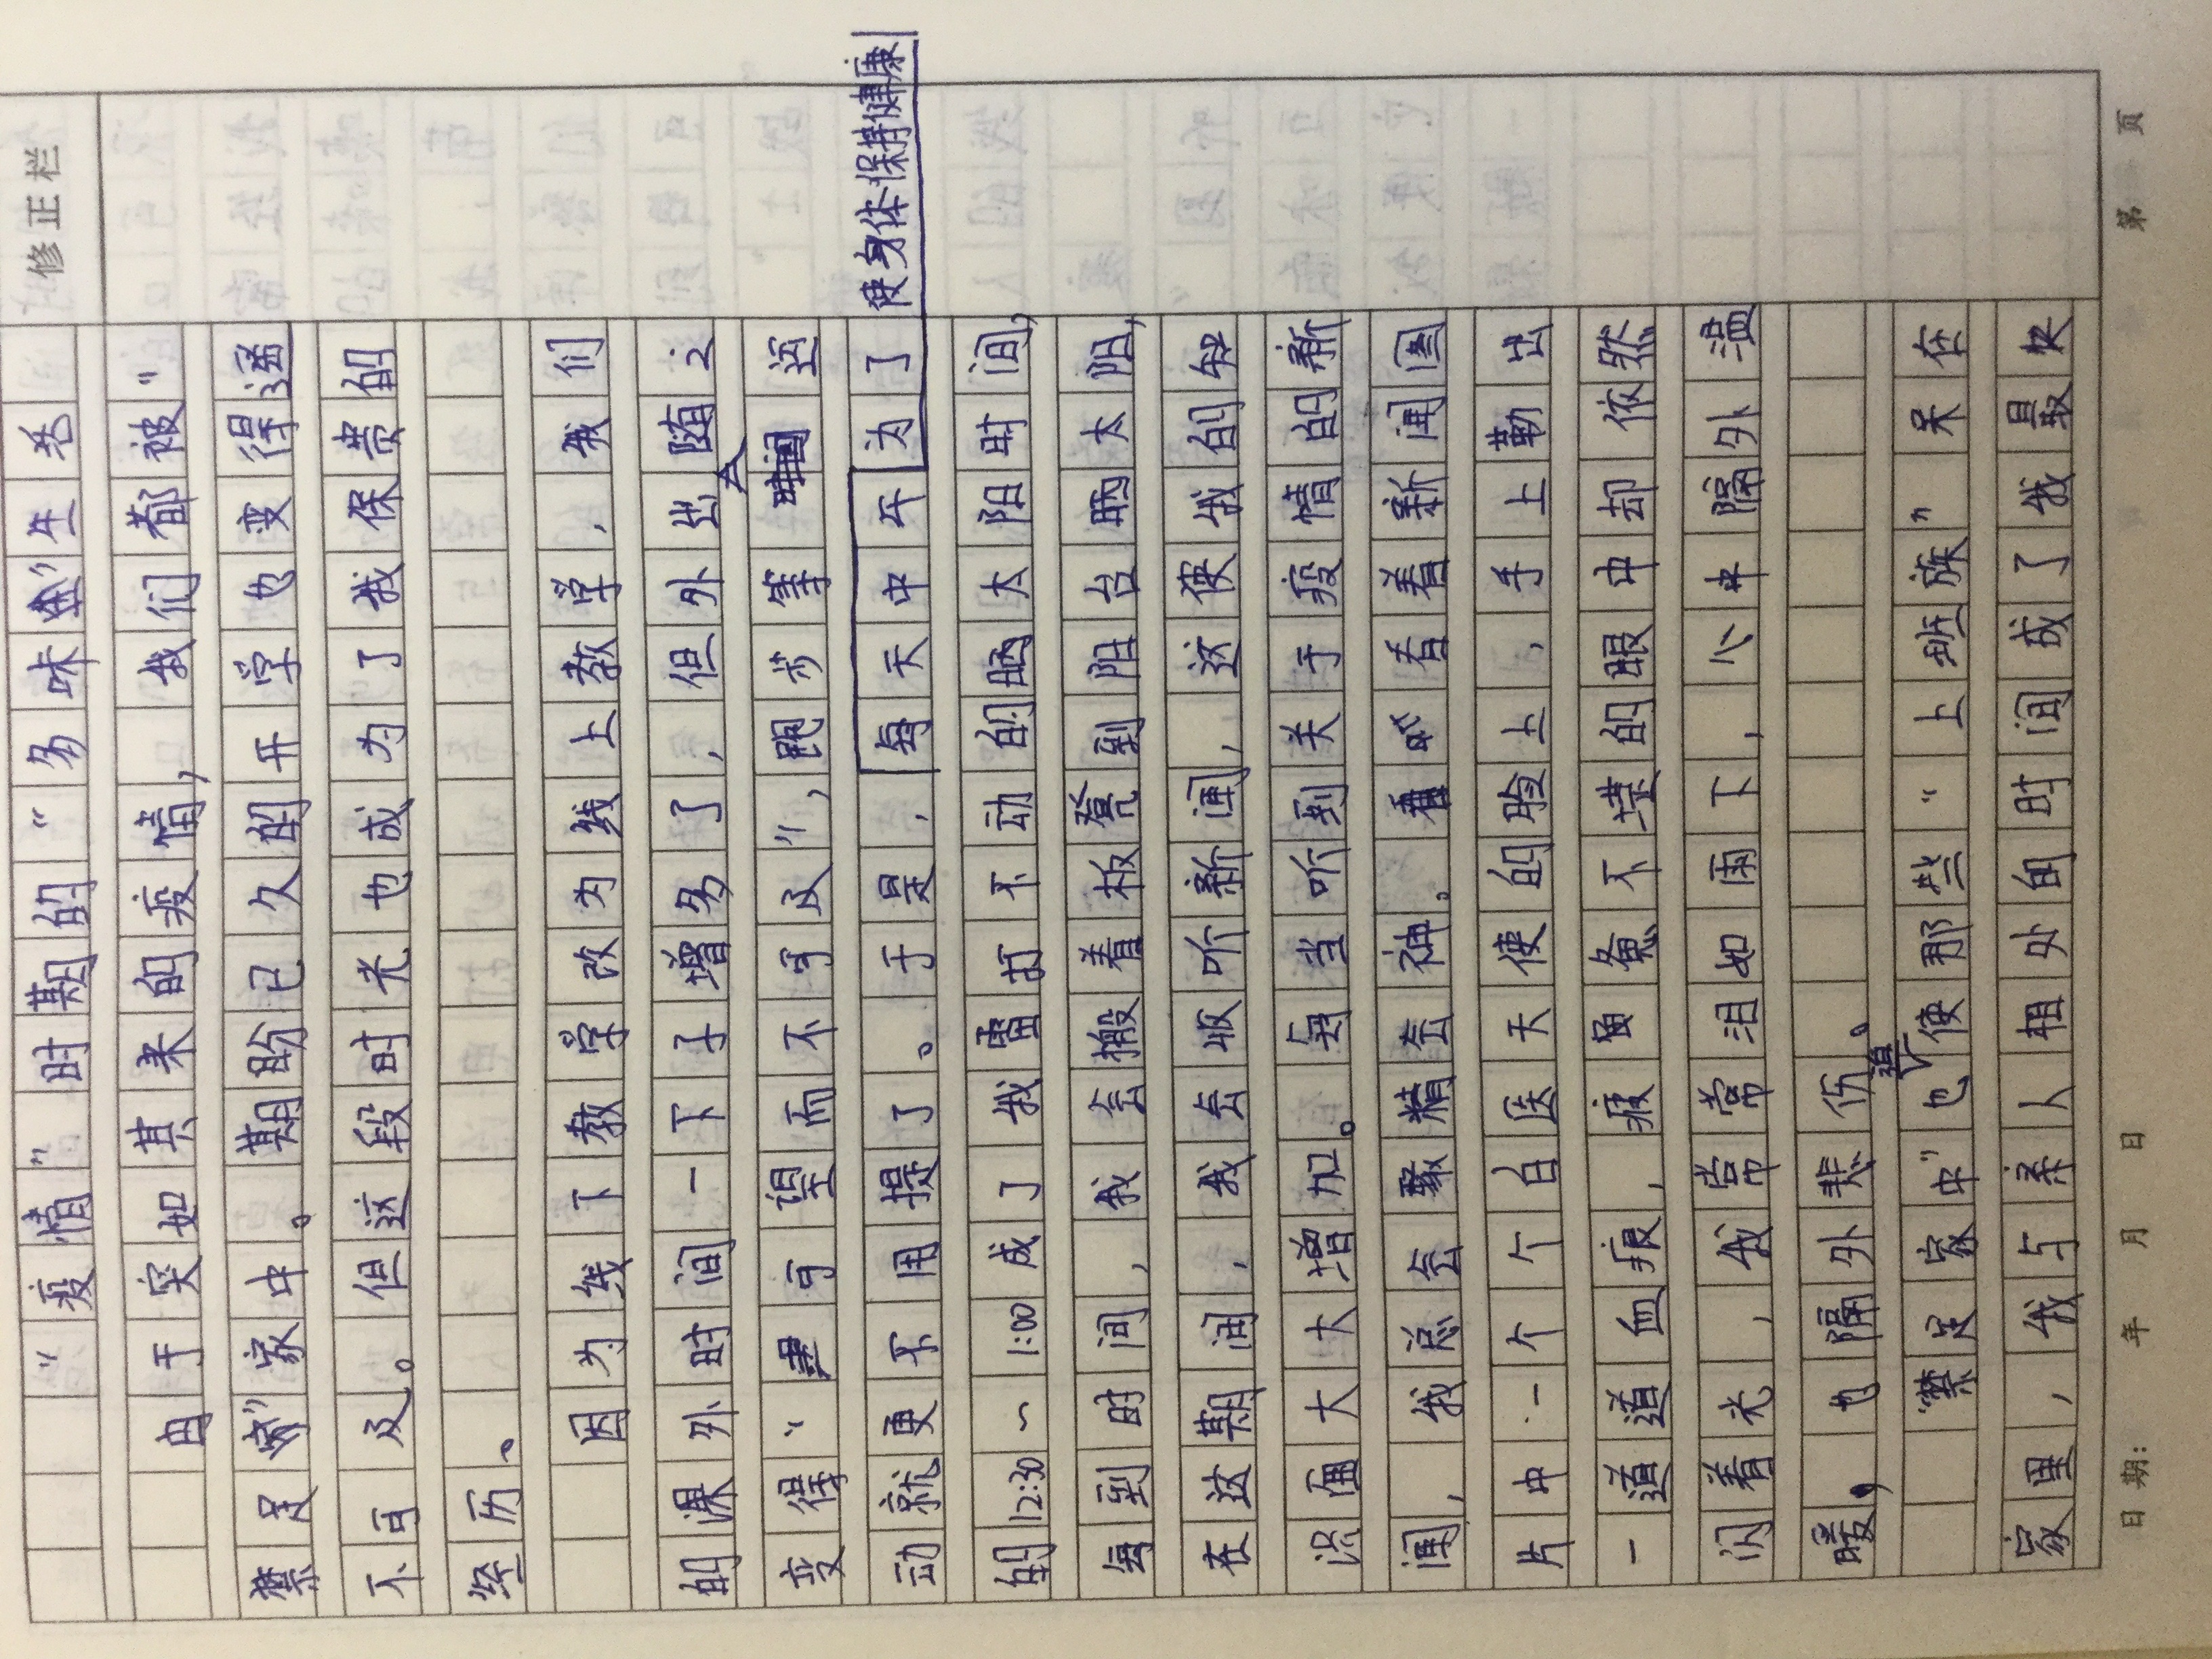 修正栏
"疫情"时期的"多味"生活
由于突如其来的疫情，我们都被"
禁足"家中。期盼已久的开学也变得遥
不可及。但这段时光也成为了我保贵的
经历。
因为线下教学改为线上教学，我们
的课外时间一下子增多了，但外出随之
变得"可望而不可及"，跑步等运
动就更不用提了。于是，每天中午为了使身体保持健康
的12:30~1:00成了我雷打不动的晒太阳时间，
每到时间，我会搬着板凳到阳台晒太阳，
在这期间，我会收听新闻，这使我的知
识面大大增加。每当听到关于疫情的新
闻，我总会聚精会神。看着新闻图
片中一个个白医天使的脸上，手上勒出
一道道血痕，疲惫不堪的眼中却依然
闪着光，我常常泪如雨下，心中隔外温
暖，也隔外悲伤。
"禁足家中"也使那些"上班族"呆在
家里，我与亲人相处的时间成了我最快
日期： 年 月 日 第 页